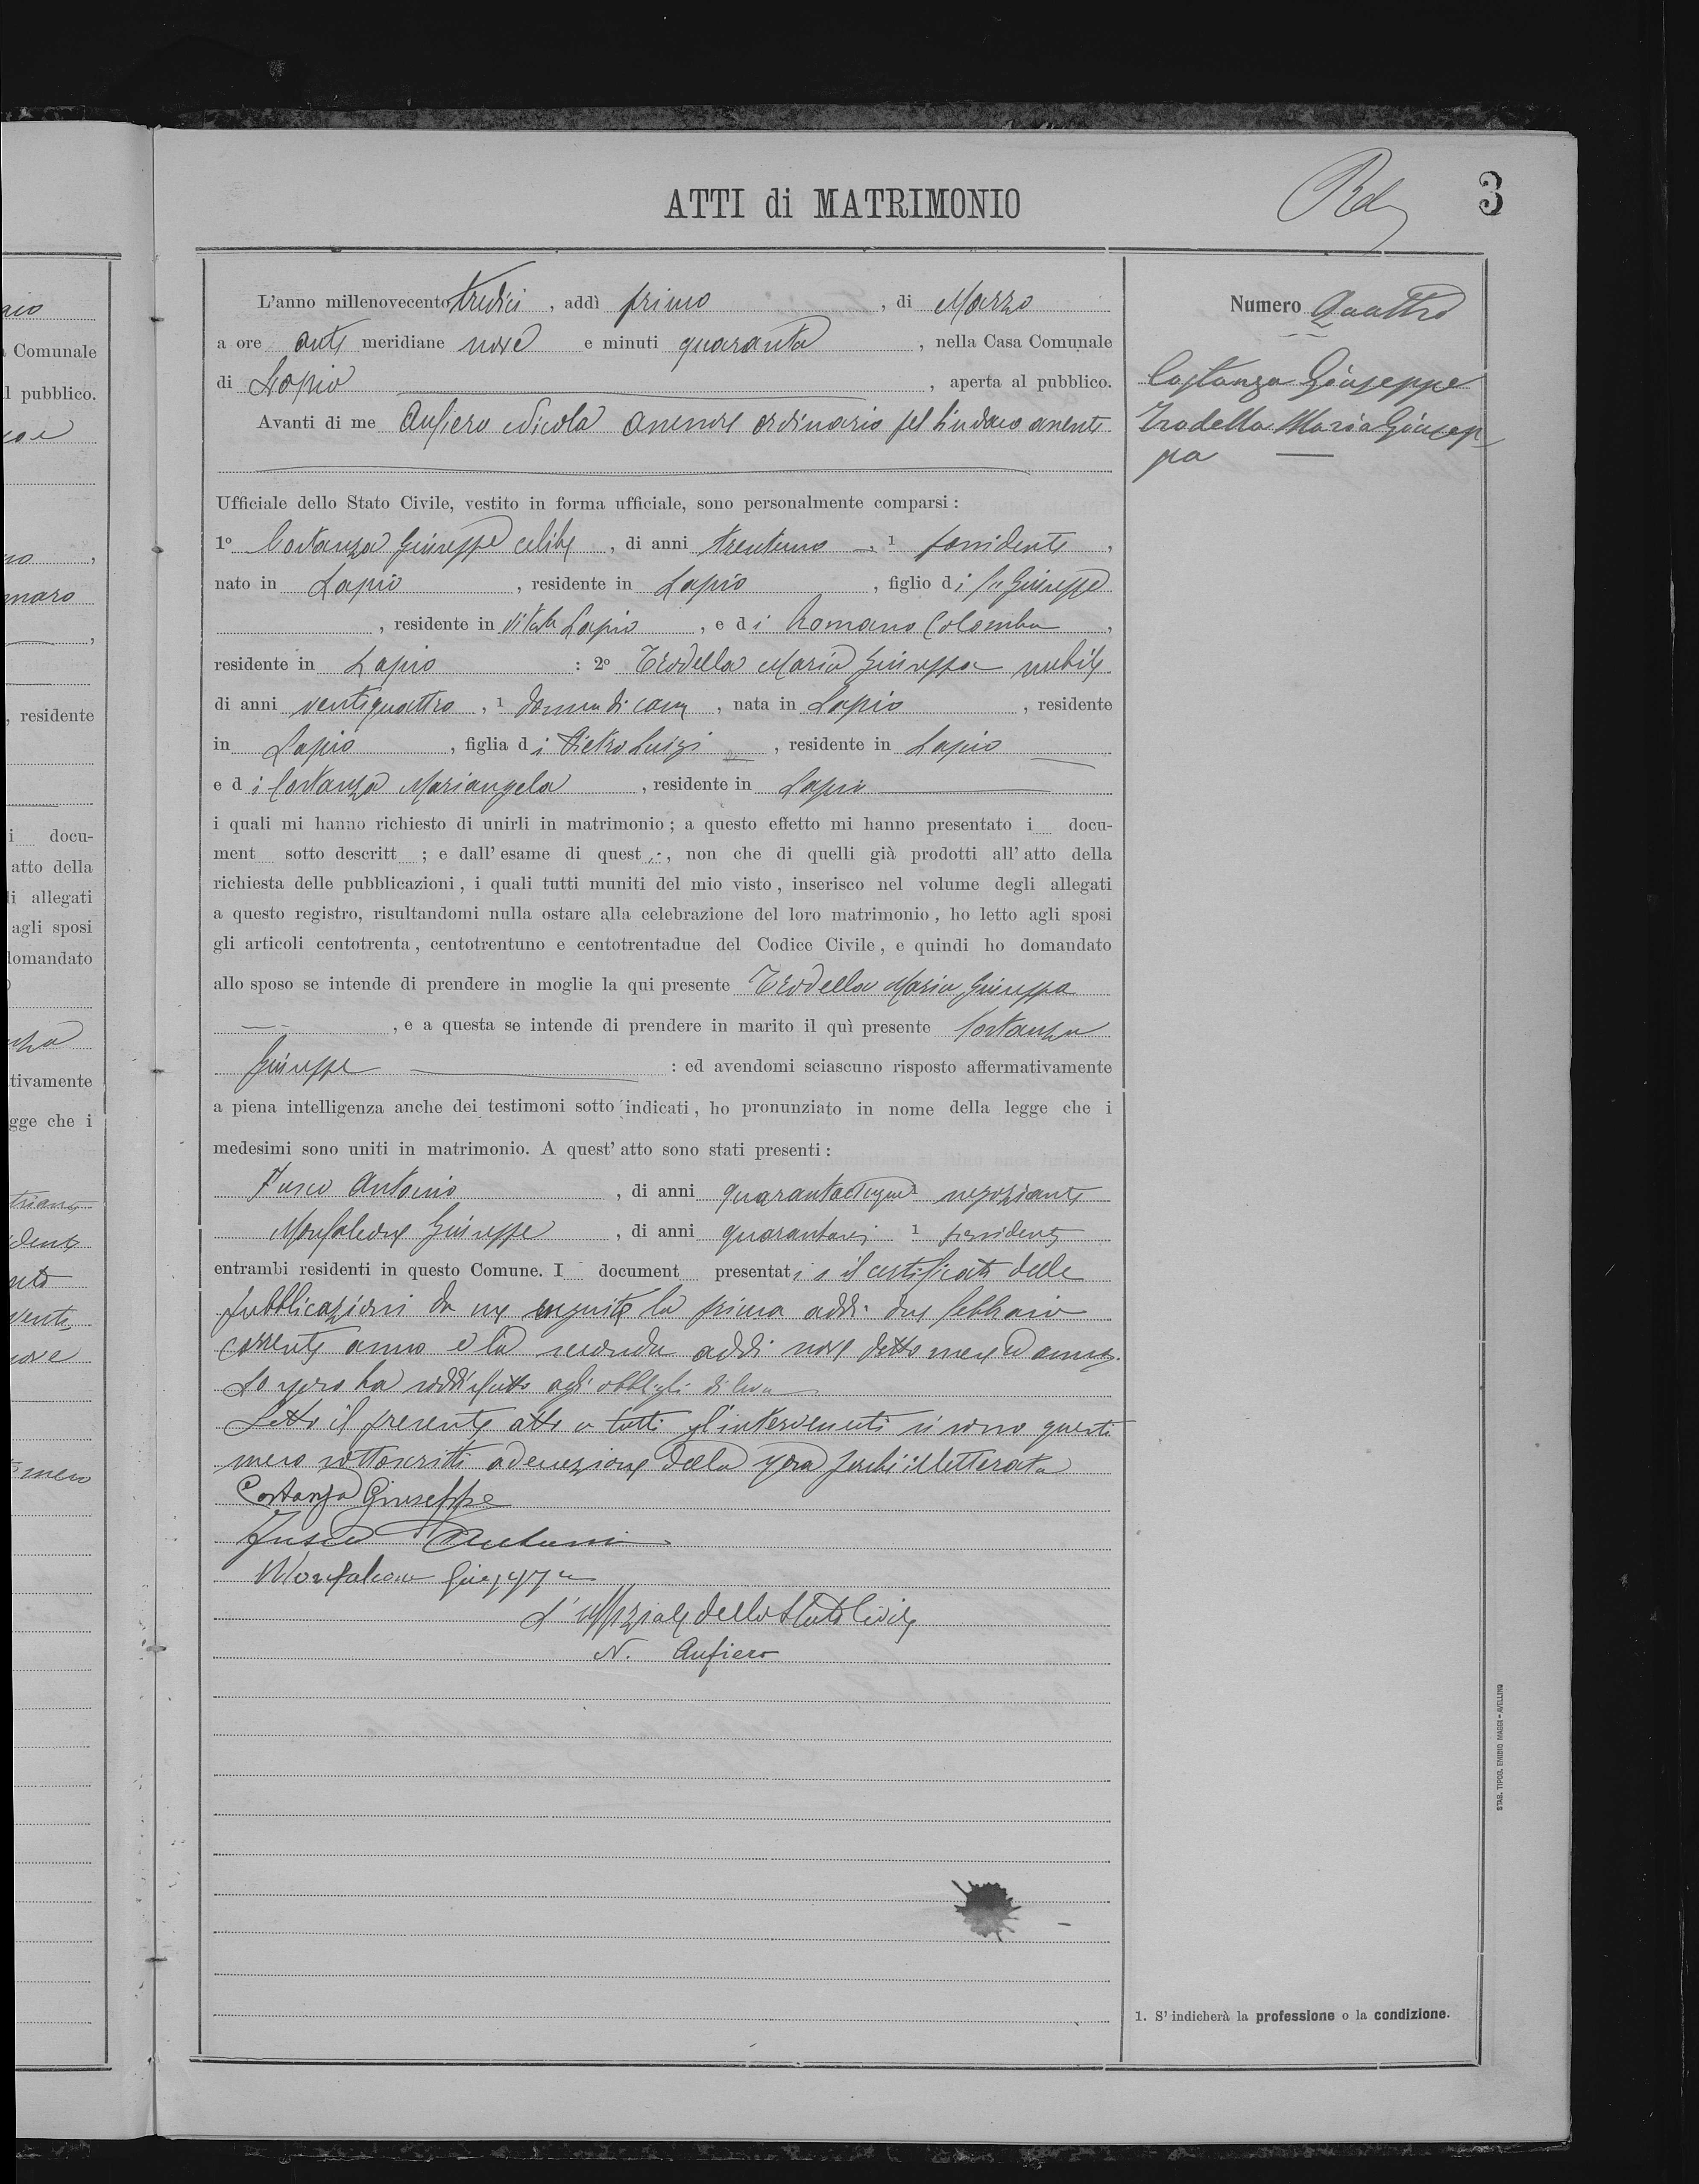 ATTI di MATRIMONIO
3
L'anno millenovecento tredici, addì primo, di Marzo
a ore anti meridiane nove e minuti quaranta, nella Casa Comunale
di Lapio, aperta al pubblico.
Avanti di me Anfiero Nicola assessore ordinario pel Sindaco assente
Ufficiale dello Stato Civile, vestito in forma ufficiale, sono personalmente comparsi:
1º Costanza Giuseppe celibe, di anni trentuno, 1 possidente,
nato in Lapio, residente in Lapio, figlio di fu Giuseppe
, residente in vita in Lapio, e di Romano Colomba,
residente in Lapio : 2º Trodella Maria Giuseppa nubile
di anni ventiquattro, 1 donna di casa, nata in Lapio, residente
in Lapio, figlia di Pietro Luigi, residente in Lapio
e di Costanza Mariangela, residente in Lapio
i quali mi hanno richiesto di unirli in matrimonio; a questo effetto mi hanno presentato i docu-
ment sotto descritt ; e dall'esame di quest , non che di quelli già prodotti all'atto della
richiesta delle pubblicazioni, i quali tutti muniti del mio visto, inserisco nel volume degli allegati
a questo registro, risultandomi nulla ostare alla celebrazione del loro matrimonio, ho letto agli sposi
gli articoli centotrenta, centotrentuno e centotrentadue del Codice Civile, e quindi ho domandato
allo sposo se intende di prendere in moglie la qui presente Trodella Maria Giuseppa
, e a questa se intende di prendere in marito il quì presente Costanza
Giuseppe : ed avendomi sciascuno risposto affermativamente
a piena intelligenza anche dei testimoni sotto indicati, ho pronunziato in nome della legge che i
medesimi sono uniti in matrimonio. A quest'atto sono stati presenti:
Fusco Antonio, di anni negoziante
Monfalcone Giuseppe, di anni quarantasei 1 possidente
entrambi residenti in questo Comune. I document presentati è il certificato delle
pubblicazioni da me eseguite la prima addì due febbraio
corrente anno e la seconda addì nove detto mese ed anno.
Lo sposo ha soddisfatto agli obblighi di leva
Letto il presente atto a tutti gl'intervenuti si sono questi
meco sottoscritti ad eccezione della sposa perchè illetterata
Costanza Giuseppe
Fusco Antonio
Monfalcone Giuseppe
L'uffiziale dello Stato Civile
N. Anfiero
Numero Quattro
Costanza Giuseppe
Trodella Maria Giusep-
pa
1. S'indicherà la professione o la condizione.
STAB. TIPOG. EMIDIO MAGGI - AVELLINO
aio
Comunale
l pubblico.
maro
, residente
i docu-
atto della
li allegati
agli sposi
domandato
tivamente
gge che i
meco